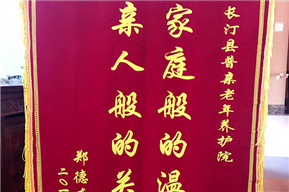 长汀县普亲老年养护院
家庭般的温
亲人般的关
郑德
二〇